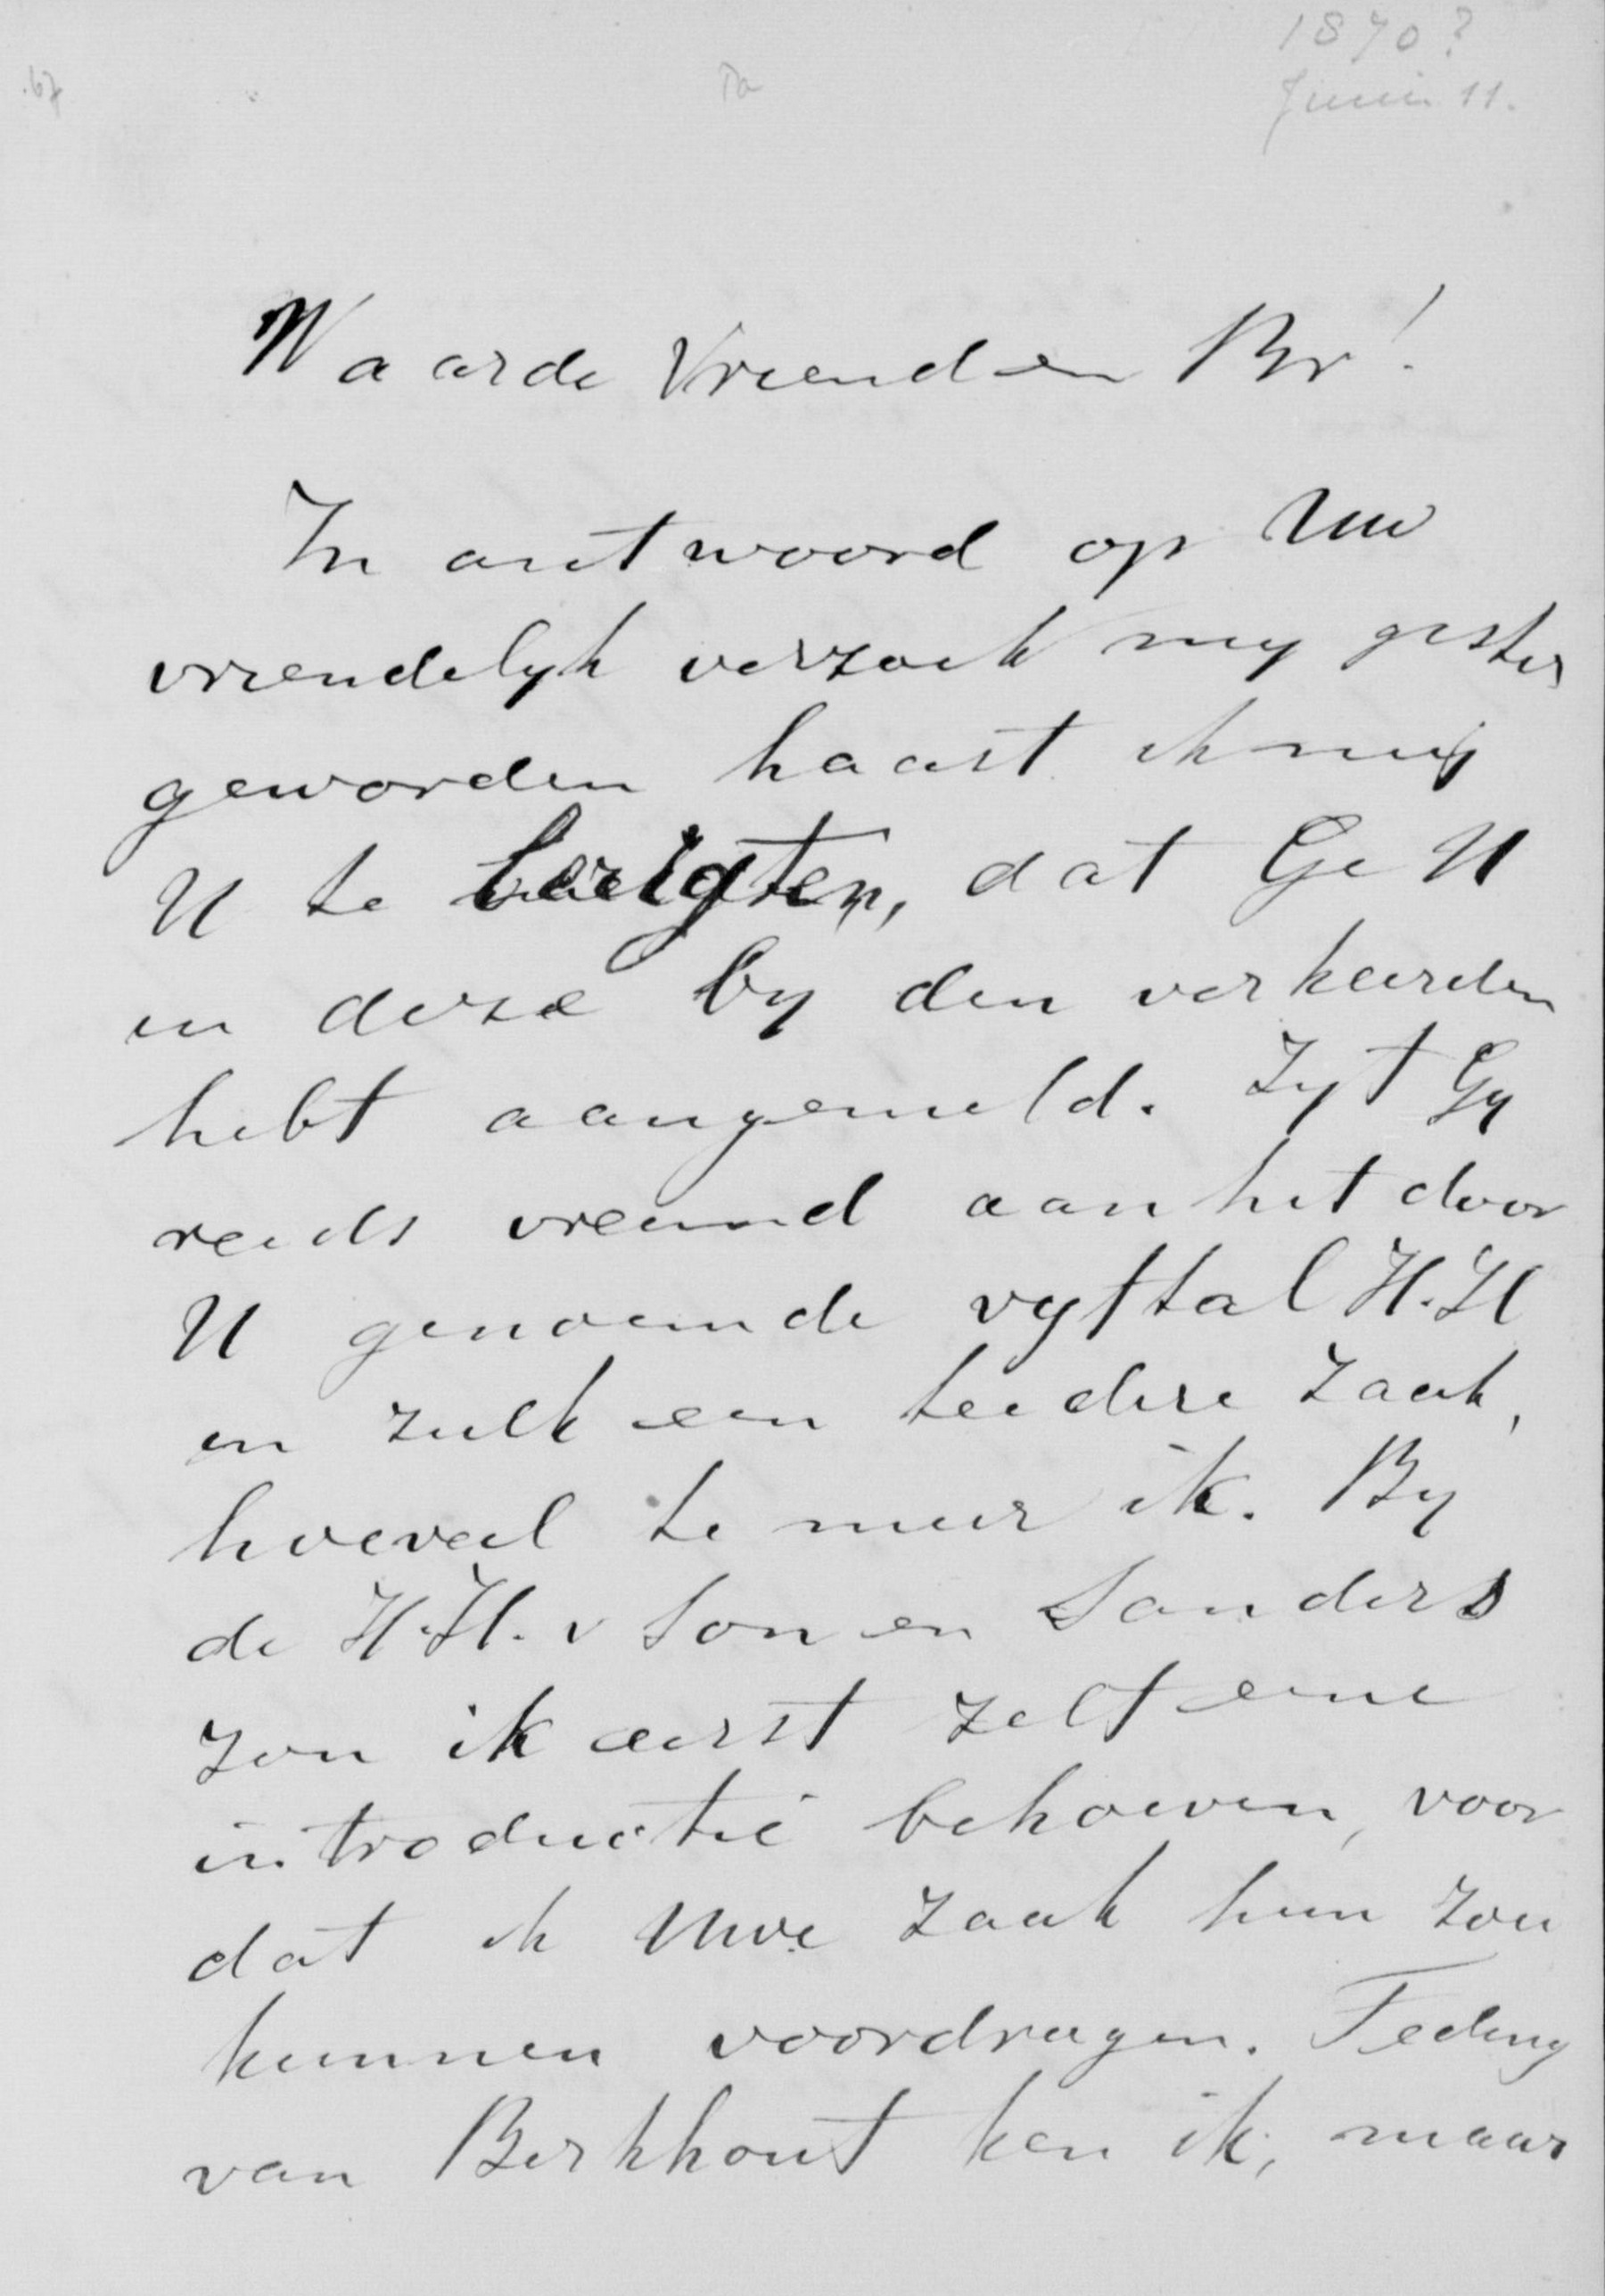 1870?
Junii 11.
Waarde Vriend en Br!
In antwoord op Uw
vriendelyk verzoek my gister
geworden haast ik mij
U te berigten, dat Ge U
in deze by den verkeerden
hebt aangemeld. Zyt Gy
reeds vreemd aan het door
U genoemde vyftal H.H
in zulk een teedere zaak,
hoeveel te meer ik. By
de H.H. v Son en Sanders
zou ik eerst zelf eene
introductie behoeven, voor
dat ik Uwe zaak hun zou
kunnen voordragen. Teding
van Berkhout ken ik, maar